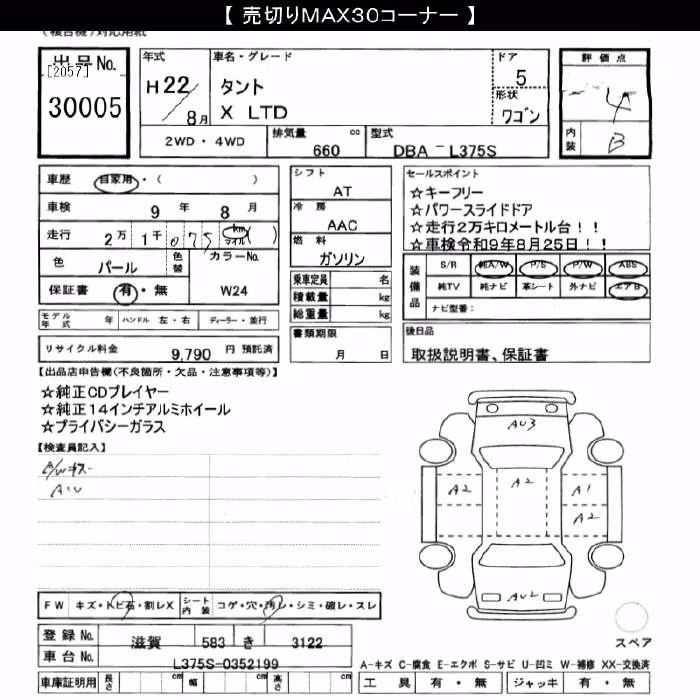 【 売切りMAX30コーナー 】
(複合機)対応用紙
出品No. [2057] 30005
年式 H22/8月
車名・グレード タント X LTD
ドア 5
形状 ワゴン
評価点 4
内装 B
2WD・4WD 排気量 660 cc 型式 DBA-L375S
車歴 自家用・( )
車検 9年 8月
走行 2万 1千 075 km マイル ( )
色 パール 色替 カラーNo. W24
保証書 有・無
モデル年式 年 ハンドル 左・右 ディーラー・並行
リサイクル料金 9,790 円 預託済
シフト AT
冷房 AAC
燃料 ガソリン
乗車定員 名
積載量 kg
総重量 kg
書類期限 月 日
セールスポイント
☆キーフリー
☆パワースライドドア
☆走行2万キロメートル台!!
☆車検令和9年8月25日!!
装備品 S/R 純A/W P/S P/W ABS
純TV 純ナビ 革シート 外ナビ エアB
ナビ型番:
後日品
取扱説明書、保証書
【出品店申告欄(不良箇所・欠品・注意事項等)】
☆純正CDプレイヤー
☆純正14インチアルミホイール
☆プライバシーガラス
【検査員記入】
A/Wキズ
AU
AU3
A2 A2 A1
A2
AU2
FW キズ・トビ石・割レX シート内装 コゲ・穴・汚レ・シミ・破レ・スレ
登録No. 滋賀 583 き 3122
車台No. L375S-0352199
スペア
A-キズ C-腐食 E-エクボ S-サビ U-凹ミ W-補修 XX-交換済
車庫証明用 長さ cm 幅 cm 高さ cm
工具 有・無 ジャッキ 有・無